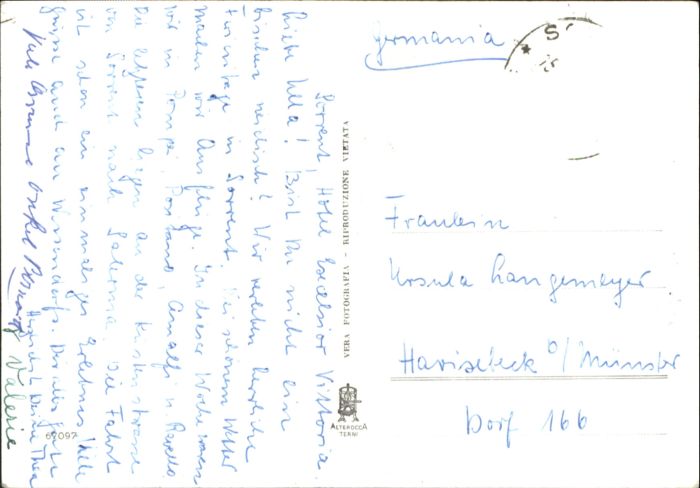 Sorrent, Hotel Excelsior Vittoria
Liebe Ulla! Bist Du nicht ein
bischen neidisch? Wir verleben herrliche
Tage in Sorrent. Bei schönem Wetter
machen wir Ausflüge. In dieser Woche waren
wir in Pompei, Positano, Amalfi u. Ravello.
Die letzteren liegen an der Küstenstrasse
von Sorrent nach Salerno. Die Fahrt
ist schon ein einmaliges Erlebnis. Viele
Grüsse auch an
Herzlichst Deine Thea
Onkel Bernard
Valerie
VERA FOTOGRAFIA - RIPRODUZIONE VIETATA
ALTEROCCA
TERNI
67097
Germania
Fräulein
Ursula Langemeyer
Havixbeck b/Münster
Dorf 166